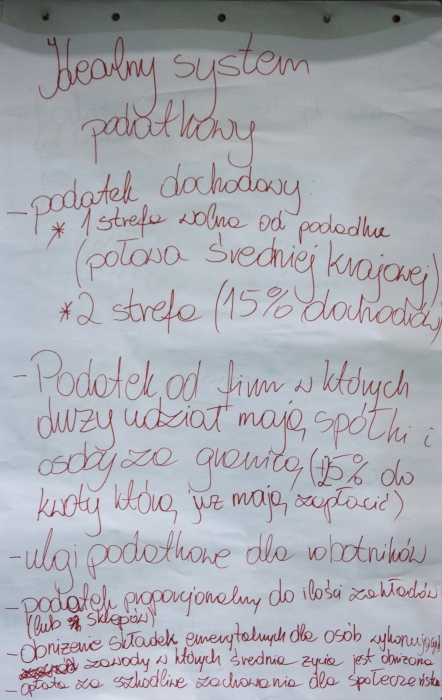 Idealny system
podatkowy
- podatek dochodowy:
* 1 strefa wolna od podatku
(połowa średniej krajowej)
* 2 strefa (15% dochodów)
- Podatek od firm w których
duży udział mają spółki i
osoby za granicą (25% do
kwoty którą już mają zapłacić)
- ulgi podatkowe dla robotników
- podatek proporcjonalny do ilości zakładów
(lub sklepów)
- Obniżenie składek emerytalnych dla osób wykonujących
zawody w których średnia życia jest obniżona
- opłata za szkodliwe zachowania dla społeczeństwa